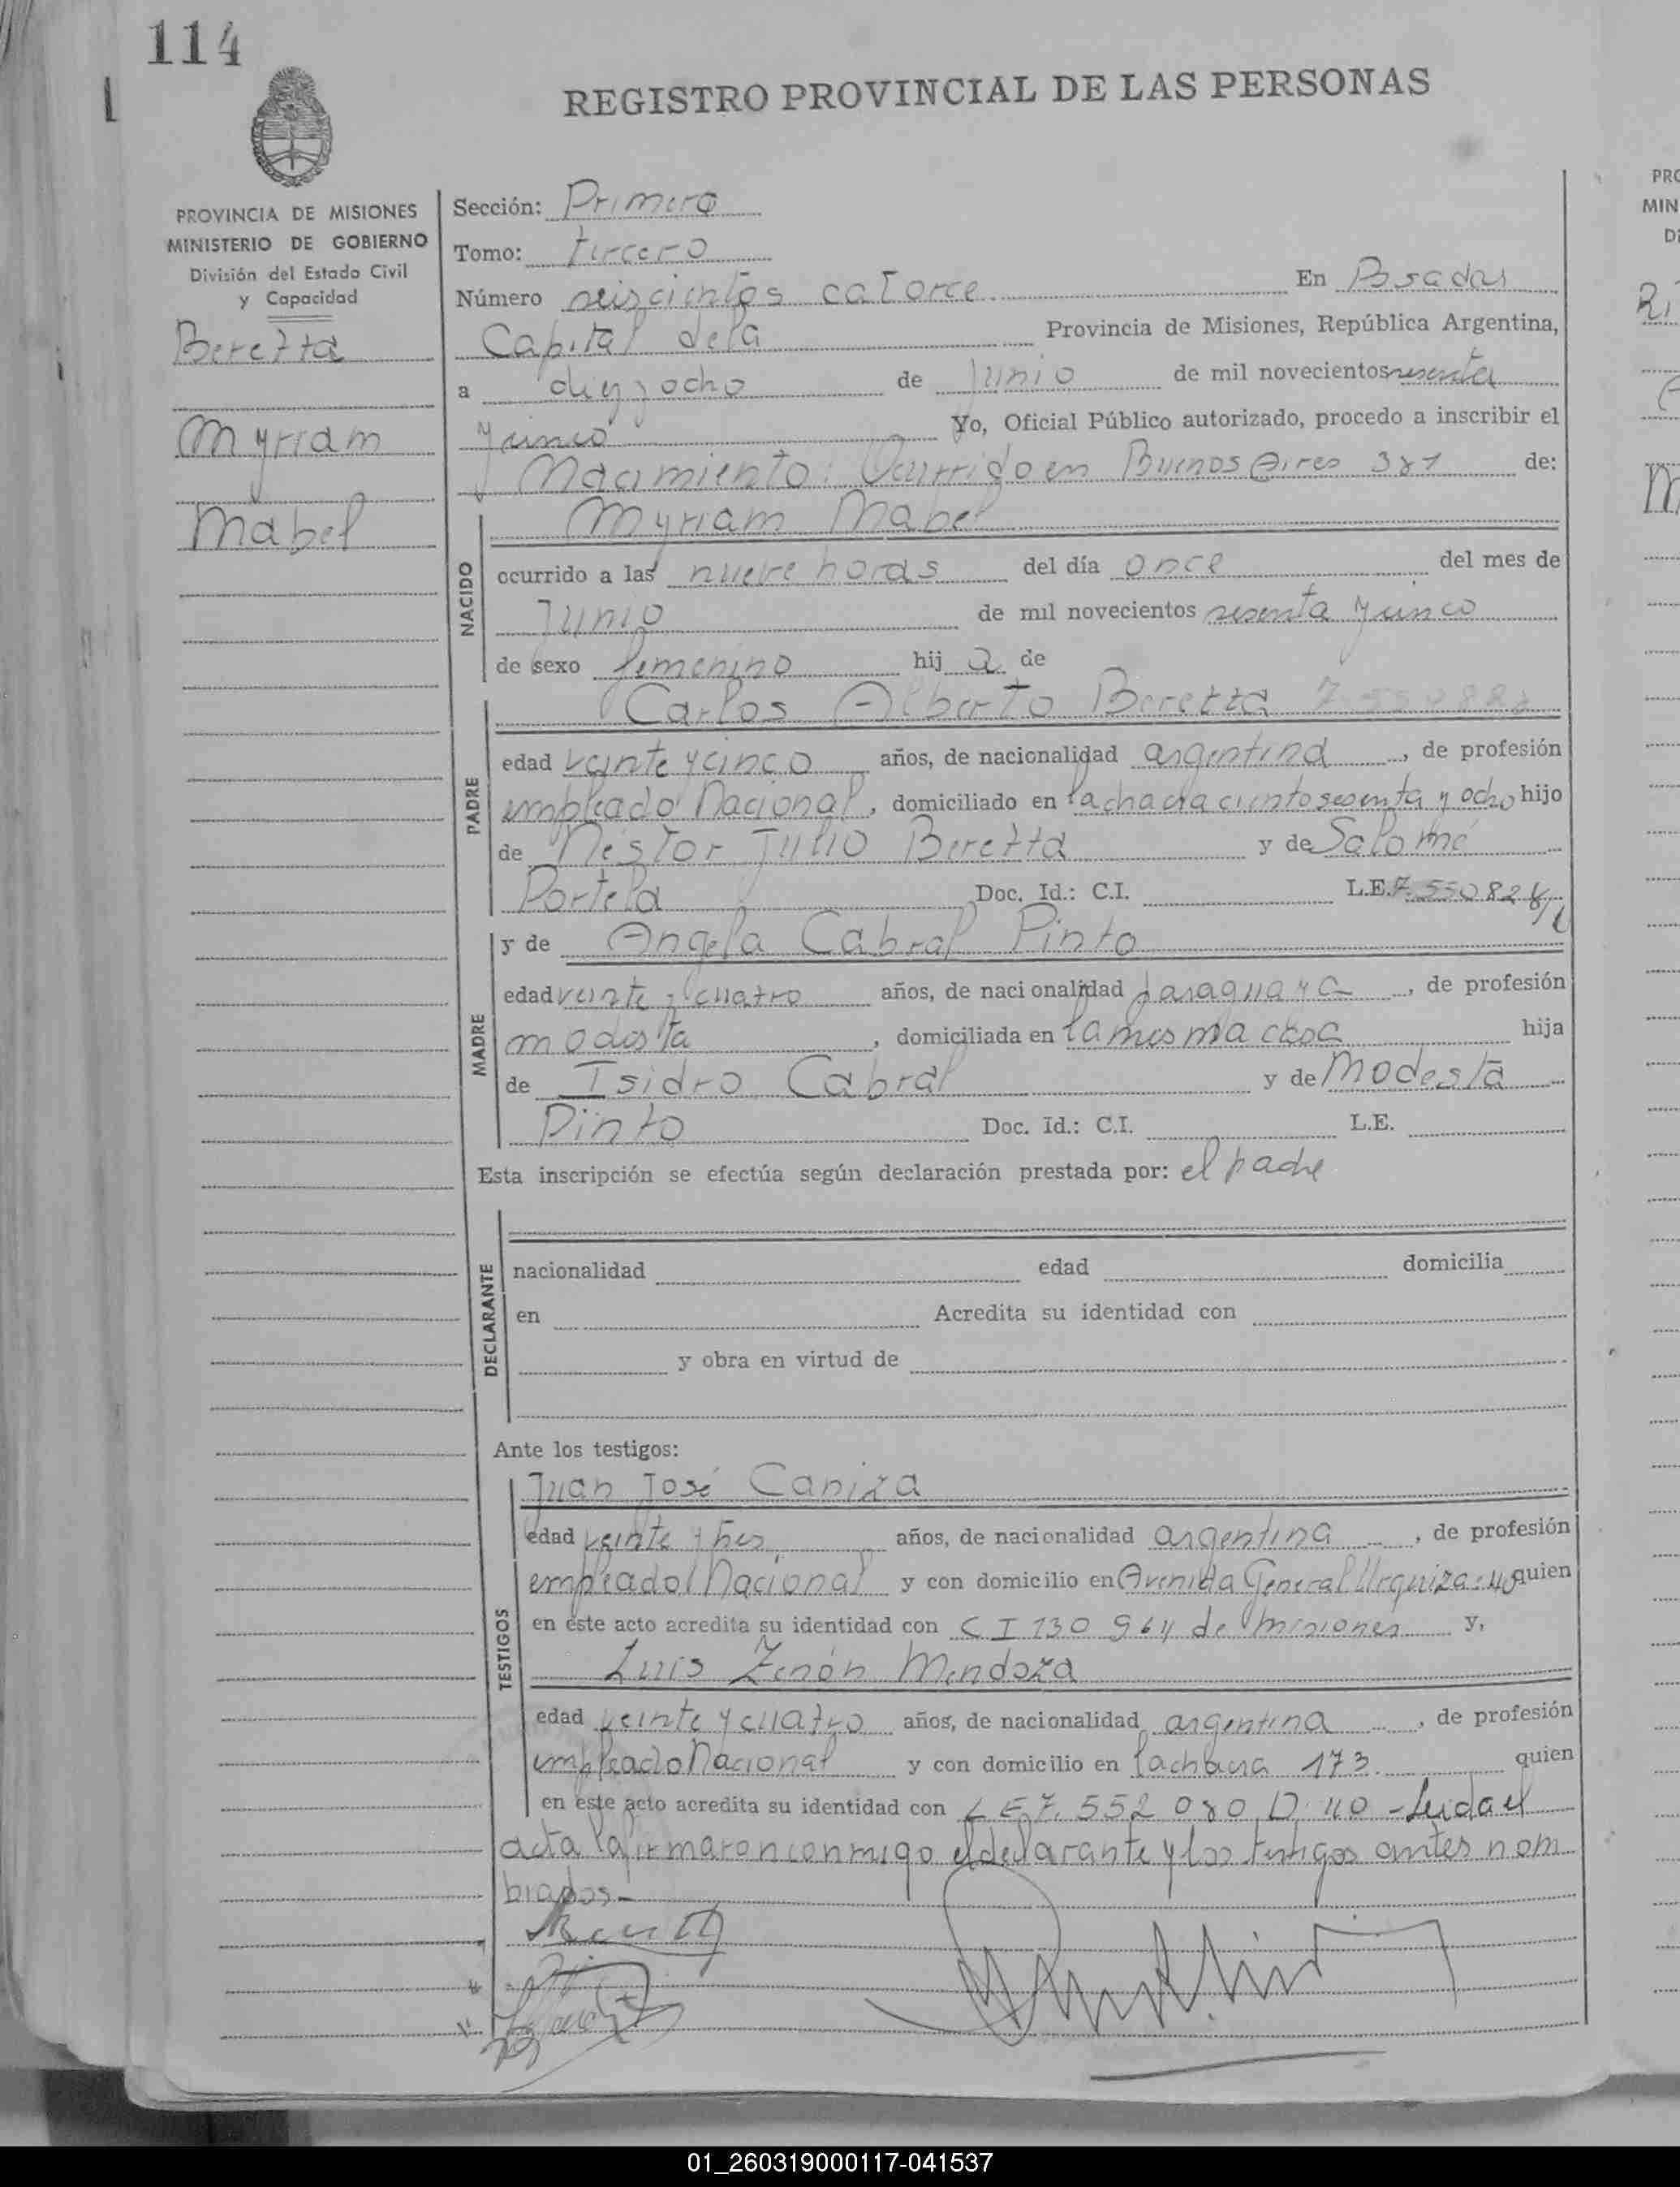 114
REGISTRO PROVINCIAL DE LAS PERSONAS
PROVINCIA DE MISIONES
MINISTERIO DE GOBIERNO
División del Estado Civil
y Capacidad
Beretta
Myriam
Mabel
Sección: Primera
Tomo: tercero
Número seiscientos catorce En Posadas
Capital dela Provincia de Misiones, República Argentina,
a diez y ocho de Junio de mil novecientos sesenta
y cinco Yo, Oficial Público autorizado, procedo a inscribir el
Nacimiento: Ocurrido en Buenos Aires 381 de:
Myriam Mabel
NACIDO
ocurrido a las nueve horas del día once del mes de
Junio de mil novecientos sesenta y cinco
de sexo femenino hij a de
Carlos Alberto Beretta
PADRE
edad veinte y cinco años, de nacionalidad argentina, de profesión
empleado Nacional, domiciliado en la chacra ciento sesenta y ocho hijo
de Néstor Julio Beretta y de Salomé
Portela Doc. Id.: C.I. L.E. 7.550828
y de Angela Cabral Pinto
MADRE
edad veinte y cuatro años, de nacionalidad paraguaya, de profesión
modista, domiciliada en la misma casa hija
de Isidro Cabral y de Modesta
Pinto Doc. Id.: C.I. L.E.
Esta inscripción se efectúa según declaración prestada por: el padre
DECLARANTE
nacionalidad edad domicilia
en Acredita su identidad con
y obra en virtud de
Ante los testigos:
TESTIGOS
Juan José Caniza
edad veinte y tres años, de nacionalidad argentina, de profesión
empleado Nacional y con domicilio en Avenida General Urquiza quien
en este acto acredita su identidad con C I 130 964 de Misiones y,
Luis Zenón Mendoza
edad veinte y cuatro años, de nacionalidad argentina, de profesión
empleado Nacional y con domicilio en la chacra 173 quien
en este acto acredita su identidad con L E 7.552 080 D. 40 - Leida el
acta la firmaron conmigo el declarante y los testigos antes nom
brados.-
01_260319000117-041537